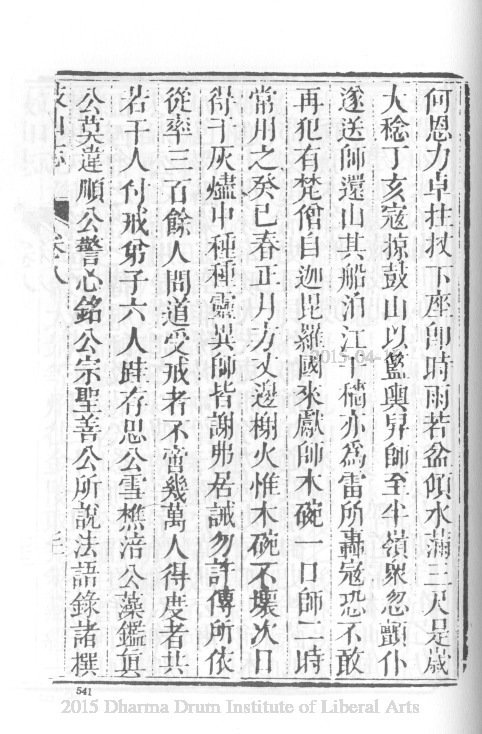 何恩力卓拄杖下座卽時雨若盆傾水滿三尺是歲
大稔丁亥寇掠鼓山以籃輿舁師至半嶺衆忽顫仆
遂送師還山其船泊江干檣亦爲雷所轟寇恐不敢
再犯有梵僧自迦毘羅國來獻師木碗一口師二時
常用之癸巳春正月方丈邊榭火惟木碗不壞次日
得于灰燼中種種靈異師皆謝弗居誡勿許傳所依
從率三百餘人問道受戒者不啻幾萬人得度者共
若干人付戒弟子六人跬存思公雪樵涪公藻鑑眞
公英違順公警心銘公宗聖善公所說法語錄諸撰
鼓山志 卷八
541
2015-04-
2015 Dharma Drum Institute of Liberal Arts